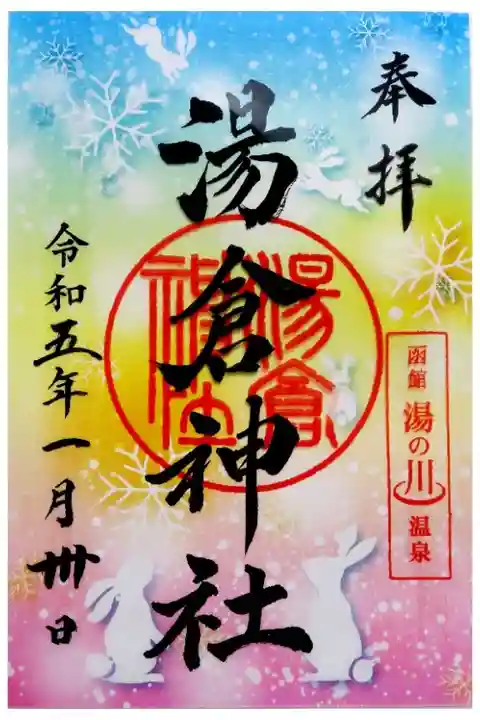 奉拝
函館 湯の川 温泉
湯倉神社
湯倉
神社
令和五年一月卅日